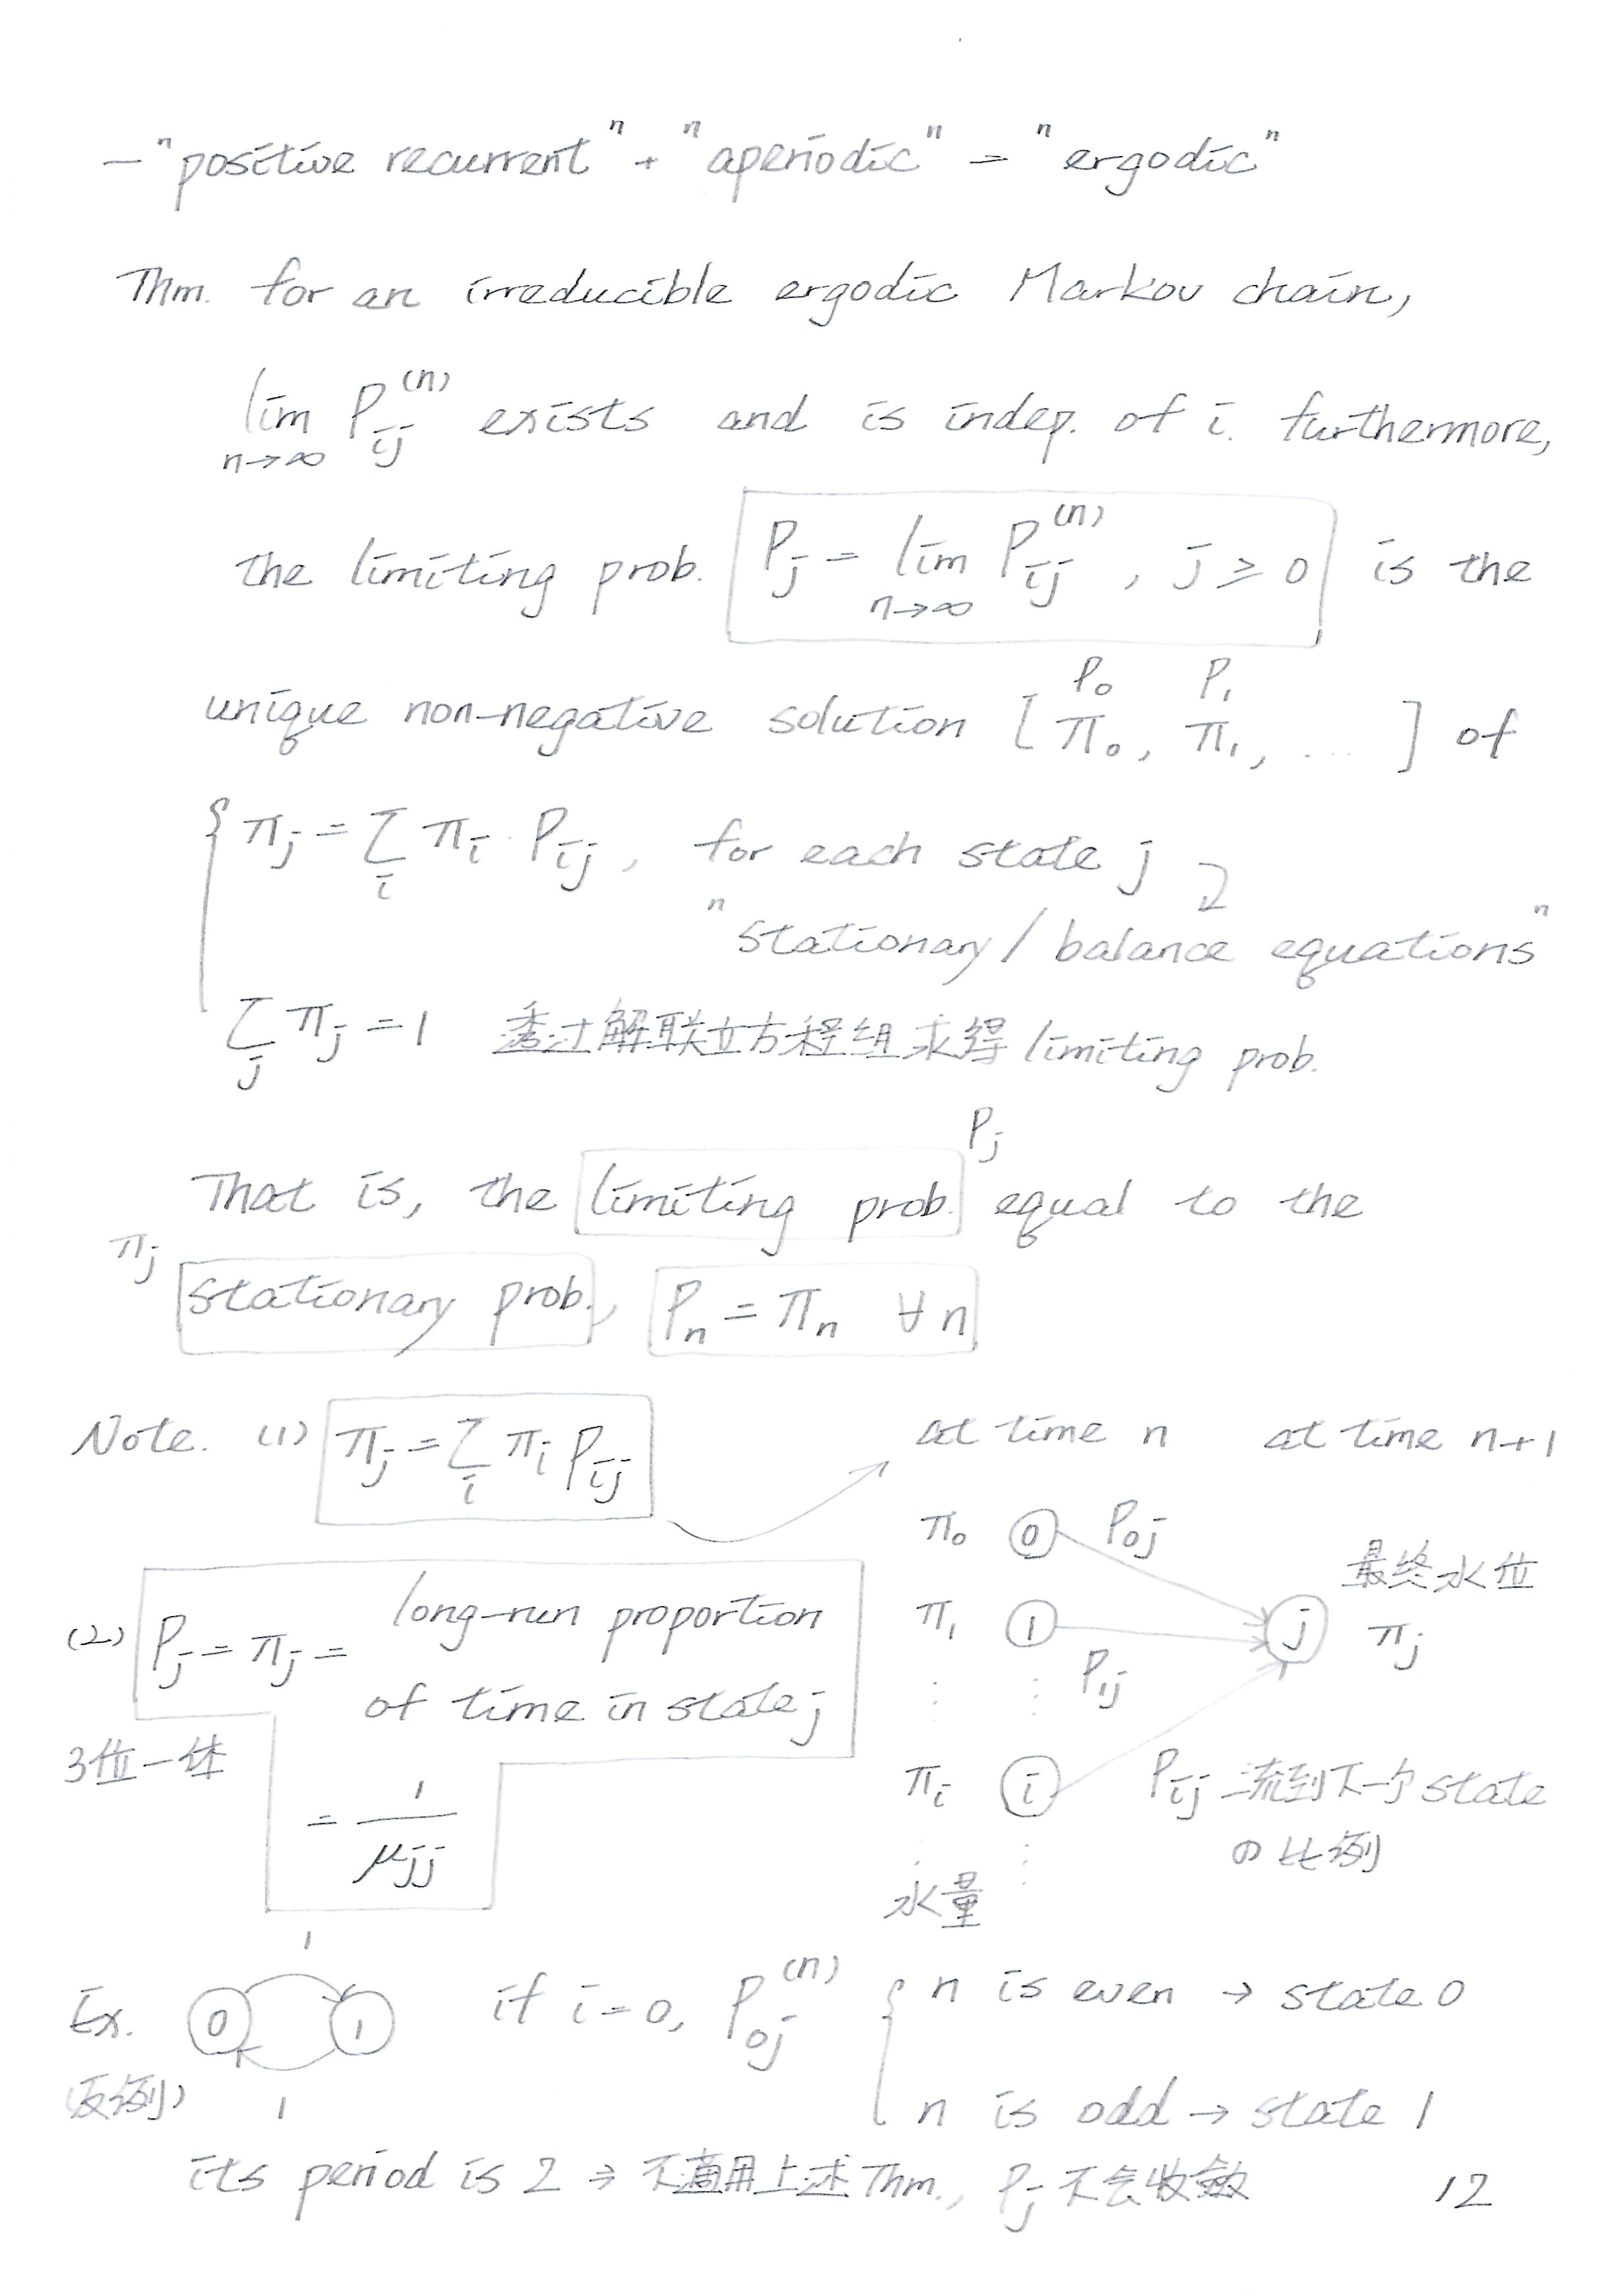 — "positive recurrent" + "aperiodic" = "ergodic"
Thm. for an irreducible ergodic Markov chain,
lim n→∞ P_ij^(n) exists and is indep. of i. furthermore,
the limiting prob. P_j = lim n→∞ P_ij^(n), j ≥ 0 is the
P_0 P_1
unique non-negative solution [π_0, π_1, ... ] of
{ π_j = Σ_i π_i · P_ij, for each state j
"stationary / balance equations"
Σ_j π_j = 1 透过解联立方程组求得 limiting prob.
P_j
That is, the limiting prob. equal to the
π_j
stationary prob., P_n = π_n ∀n
Note. (1) π_j = Σ_i π_i P_ij
at time n at time n+1
π_0 0 P_0j
最终水位
π_1 1 P_1j j π_j
⋮ ⋮
π_i i P_ij 流到下一个 state
の比例
⋮ ⋮
水量
(2) P_j = π_j = long-run proportion
of time in state j
3位一体
= 1/μ_jj
1
Ex. 0 1 if i=0, P_0j^(n) { n is even → state 0
(反例) 1 n is odd → state 1
its period is 2 ⇒ 不適用上述Thm., P_j 不会收敛
12